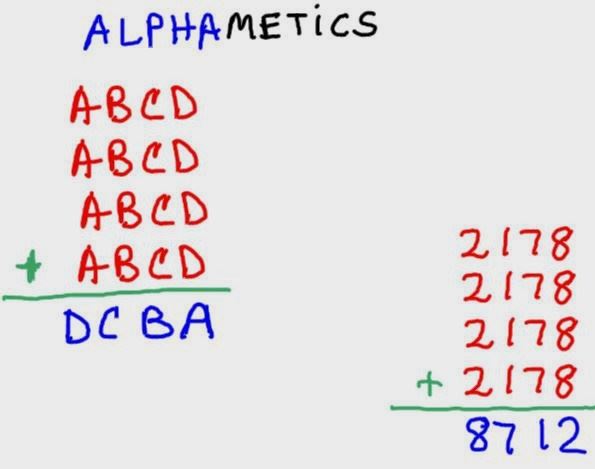 ALPHAMETiCS
ABCD
ABCD
ABCD
+ ABCD
DCBA
2178
2178
2178
+ 2178
8712